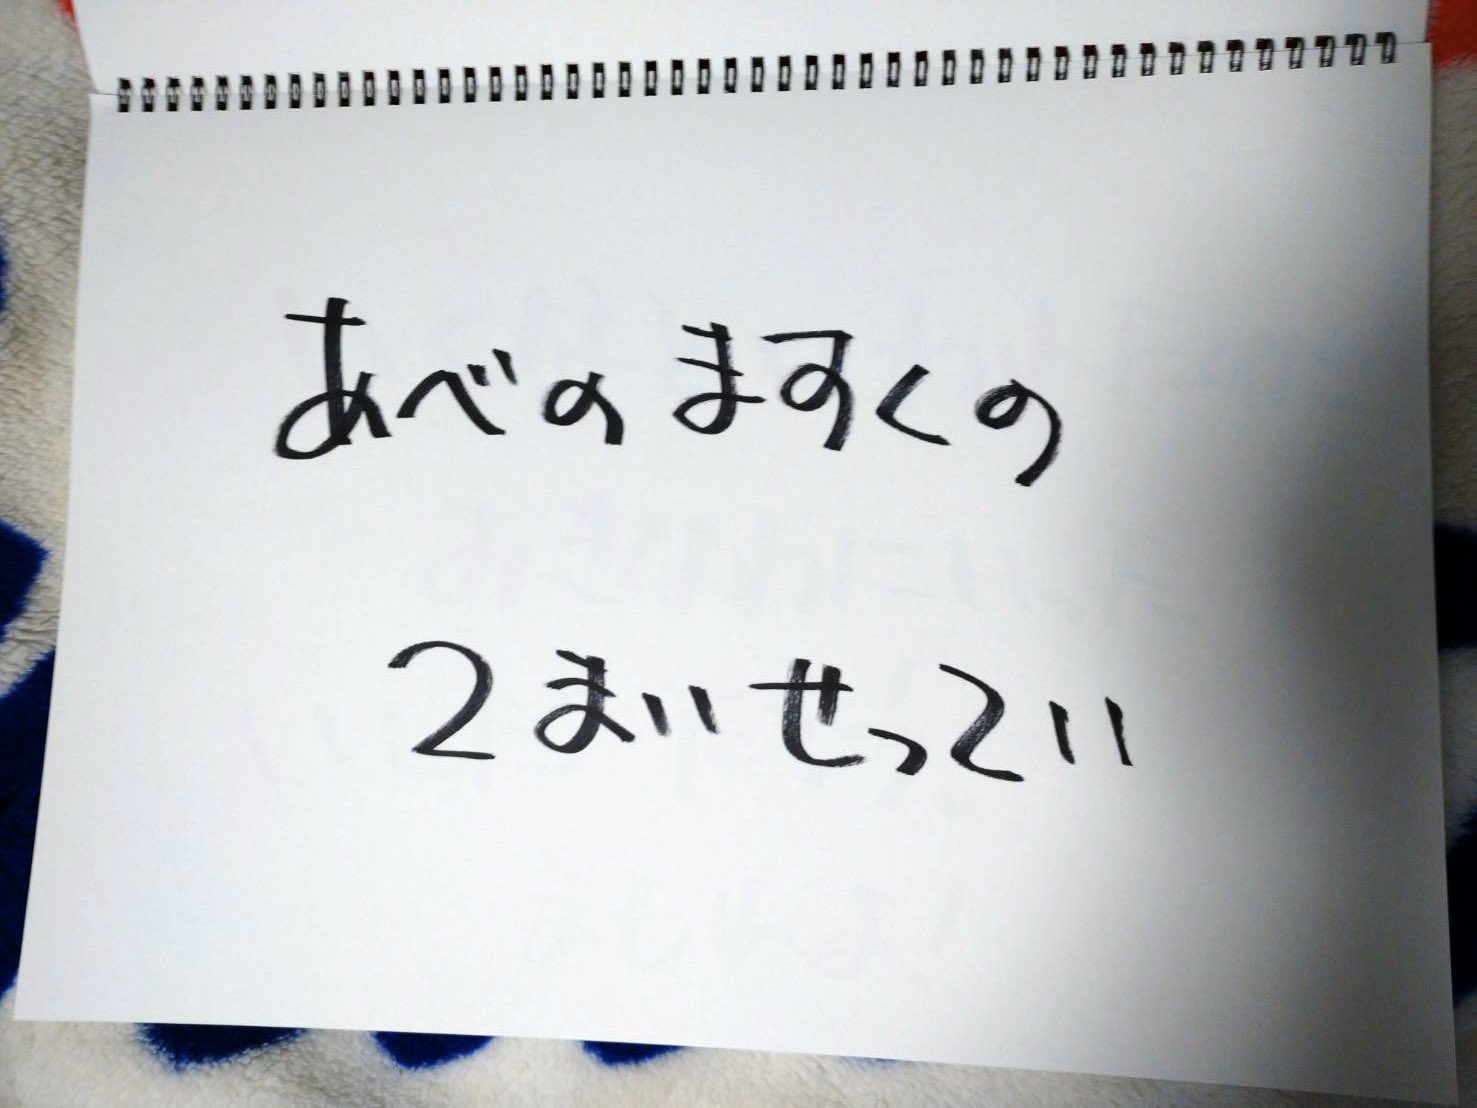 あべのますくの
2まいせってい